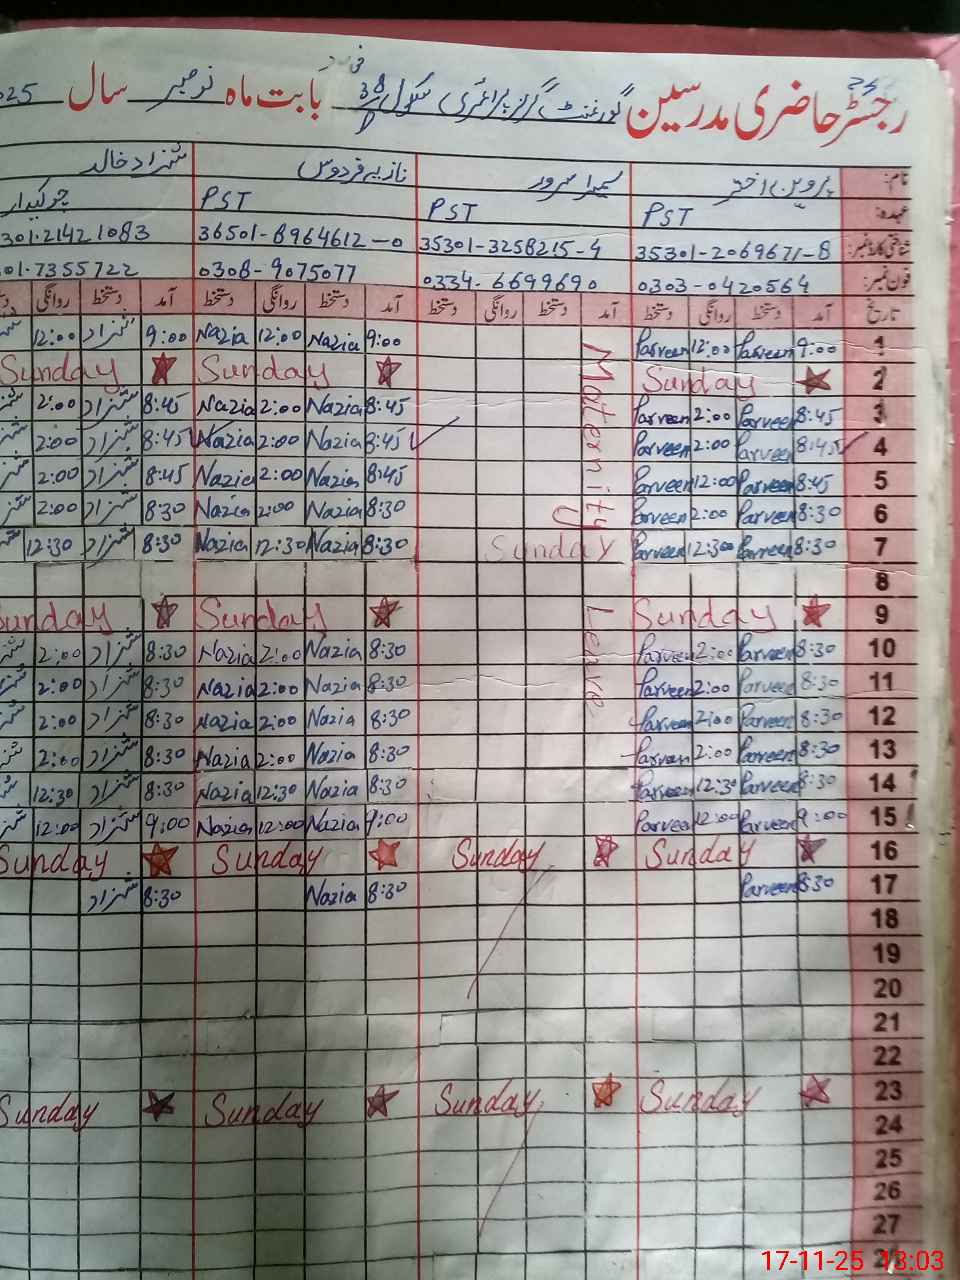 رجسٹر حاضری مدرسین گورنمنٹ گرلز پرائمری سکول 38 بابت ماہ نومبر سال 025
نام: پروین اختر سمیرا سرور نازیہ فردوس شہزاد خالد
عہدہ: PST PST PST چوکیدار
شناختی کارڈ نمبر: 35301-2069671-8 35301-3258215-4 36501-8964612-0 301-21421083
فون نمبر: 0303-0420564 0334-6699690 0308-9075077 01-7355722
تاریخ آمد دستخط روانگی دستخط آمد دستخط روانگی دستخط آمد دستخط روانگی دستخط آمد دستخط روانگی
1 9:00 Parveen 12:00 Parveen 9:00 Nazia 12:00 Nazia 9:00 شہزاد 12:00
2 Sunday Sunday Sunday
3 8:45 Parveen 2:00 Parveen 8:45 Nazia 2:00 Nazia 8:45 شہزاد 2:00
4 8:45 Parveen 2:00 Parveen 8:45 Nazia 2:00 Nazia 8:45 شہزاد 2:00
5 8:45 Parveen 12:00 Parveen 8:45 Nazia 2:00 Nazia 8:45 شہزاد 2:00
6 8:30 Parveen 2:00 Parveen 8:30 Nazia 2:00 Nazia 8:30 شہزاد 2:00
7 8:30 Parveen 12:30 Parveen Sunday 8:30 Nazia 12:30 Nazia 8:30 شہزاد 12:30
8
9 Sunday Sunday Sunday
10 8:30 Parveen 2:00 Parveen 8:30 Nazia 2:00 Nazia 8:30 شہزاد 2:00
11 8:30 Parveen 2:00 Parveen 8:30 Nazia 2:00 Nazia 8:30 شہزاد 2:00
12 8:30 Parveen 2:00 Parveen 8:30 Nazia 2:00 Nazia 8:30 شہزاد 2:00
13 8:30 Parveen 2:00 Parveen 8:30 Nazia 2:00 Nazia 8:30 شہزاد 2:00
14 8:30 Parveen 12:30 Parveen 8:30 Nazia 12:30 Nazia 8:30 شہزاد 12:30
15 9:00 Parveen 12:00 Parveen 9:00 Nazia 12:00 Nazia 9:00 شہزاد 12:00
Maternity Leave
16 Sunday Sunday Sunday Sunday
17 8:30 Parveen 8:30 Nazia 8:30 شہزاد
18
19
20
21
22
23 Sunday Sunday Sunday Sunday
24
25
26
27
17-11-25 13:03